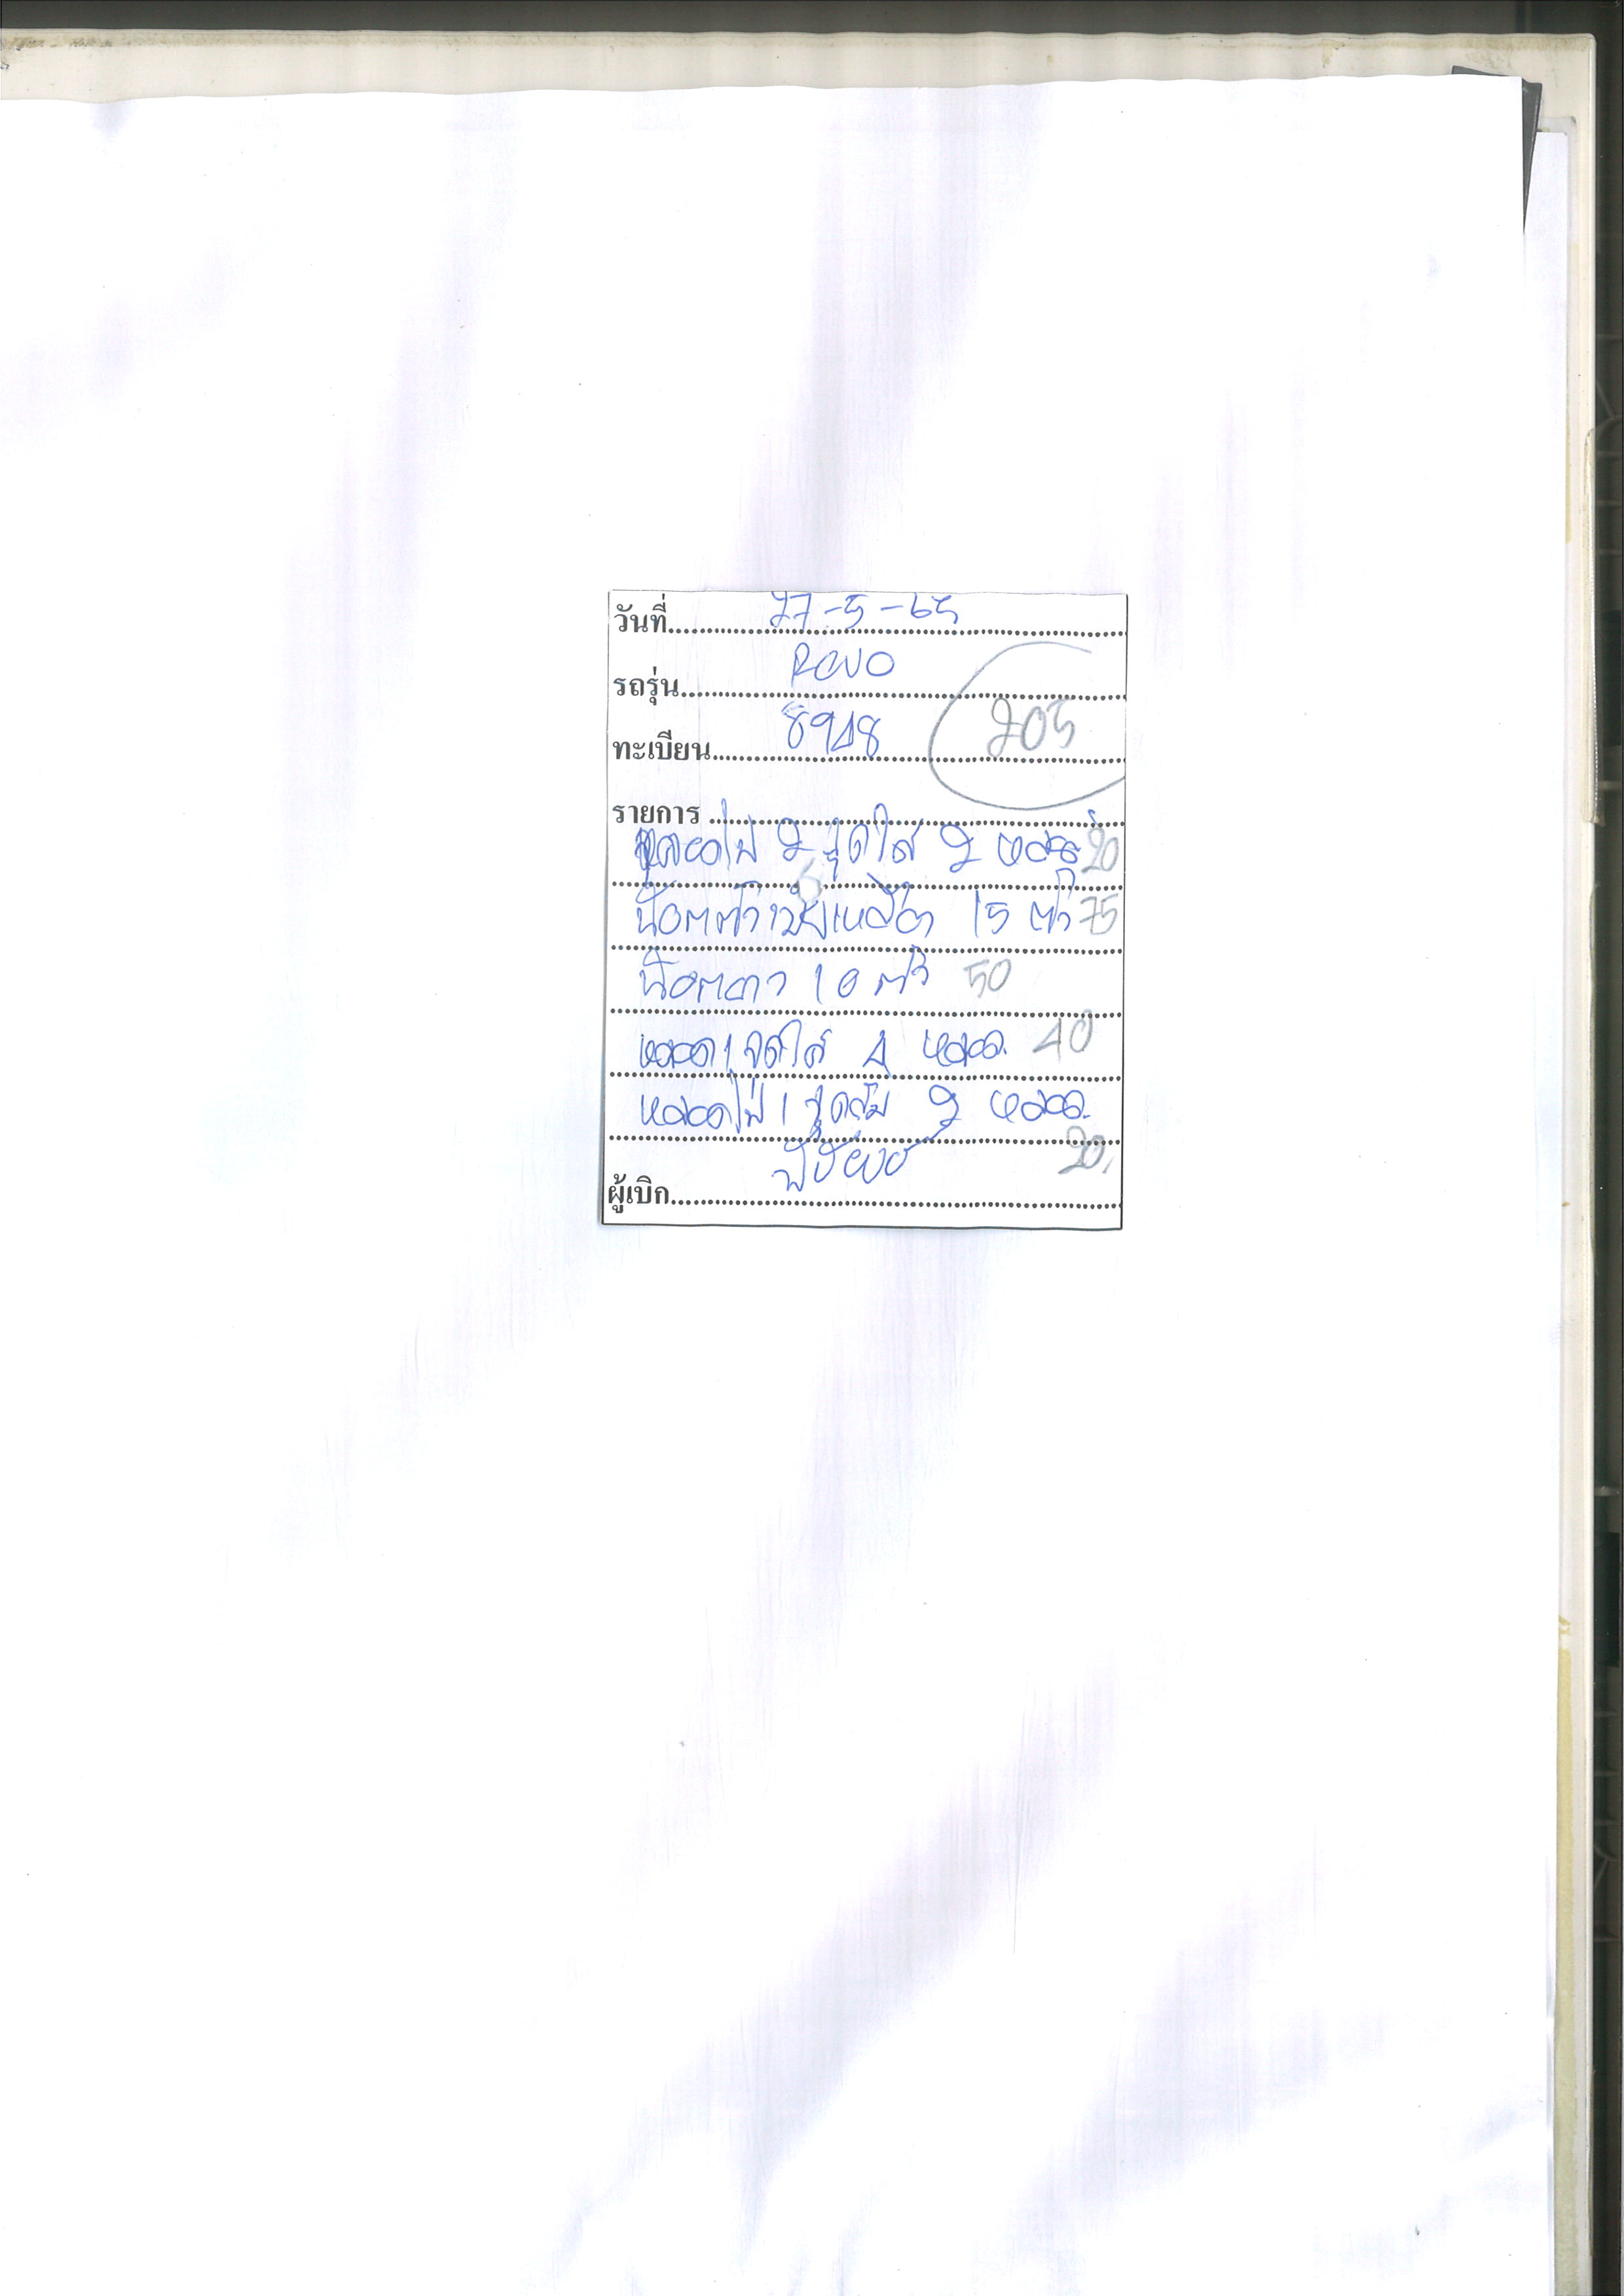 วันที่ 27-5-65
รถรุ่น Revo
ทะเบียน 8948 205
รายการ
หลอดไฟ 2 จุดใส 2 หลอด 20
น๊อตตัวเมียเหลือง 15 ตัว 75
น๊อตขาว 10 ตัว 50
หลอด 1 จุดใส 4 หลอด 40
หลอดไฟ 1 จุดส้ม 2 หลอด
20
ผู้เบิก